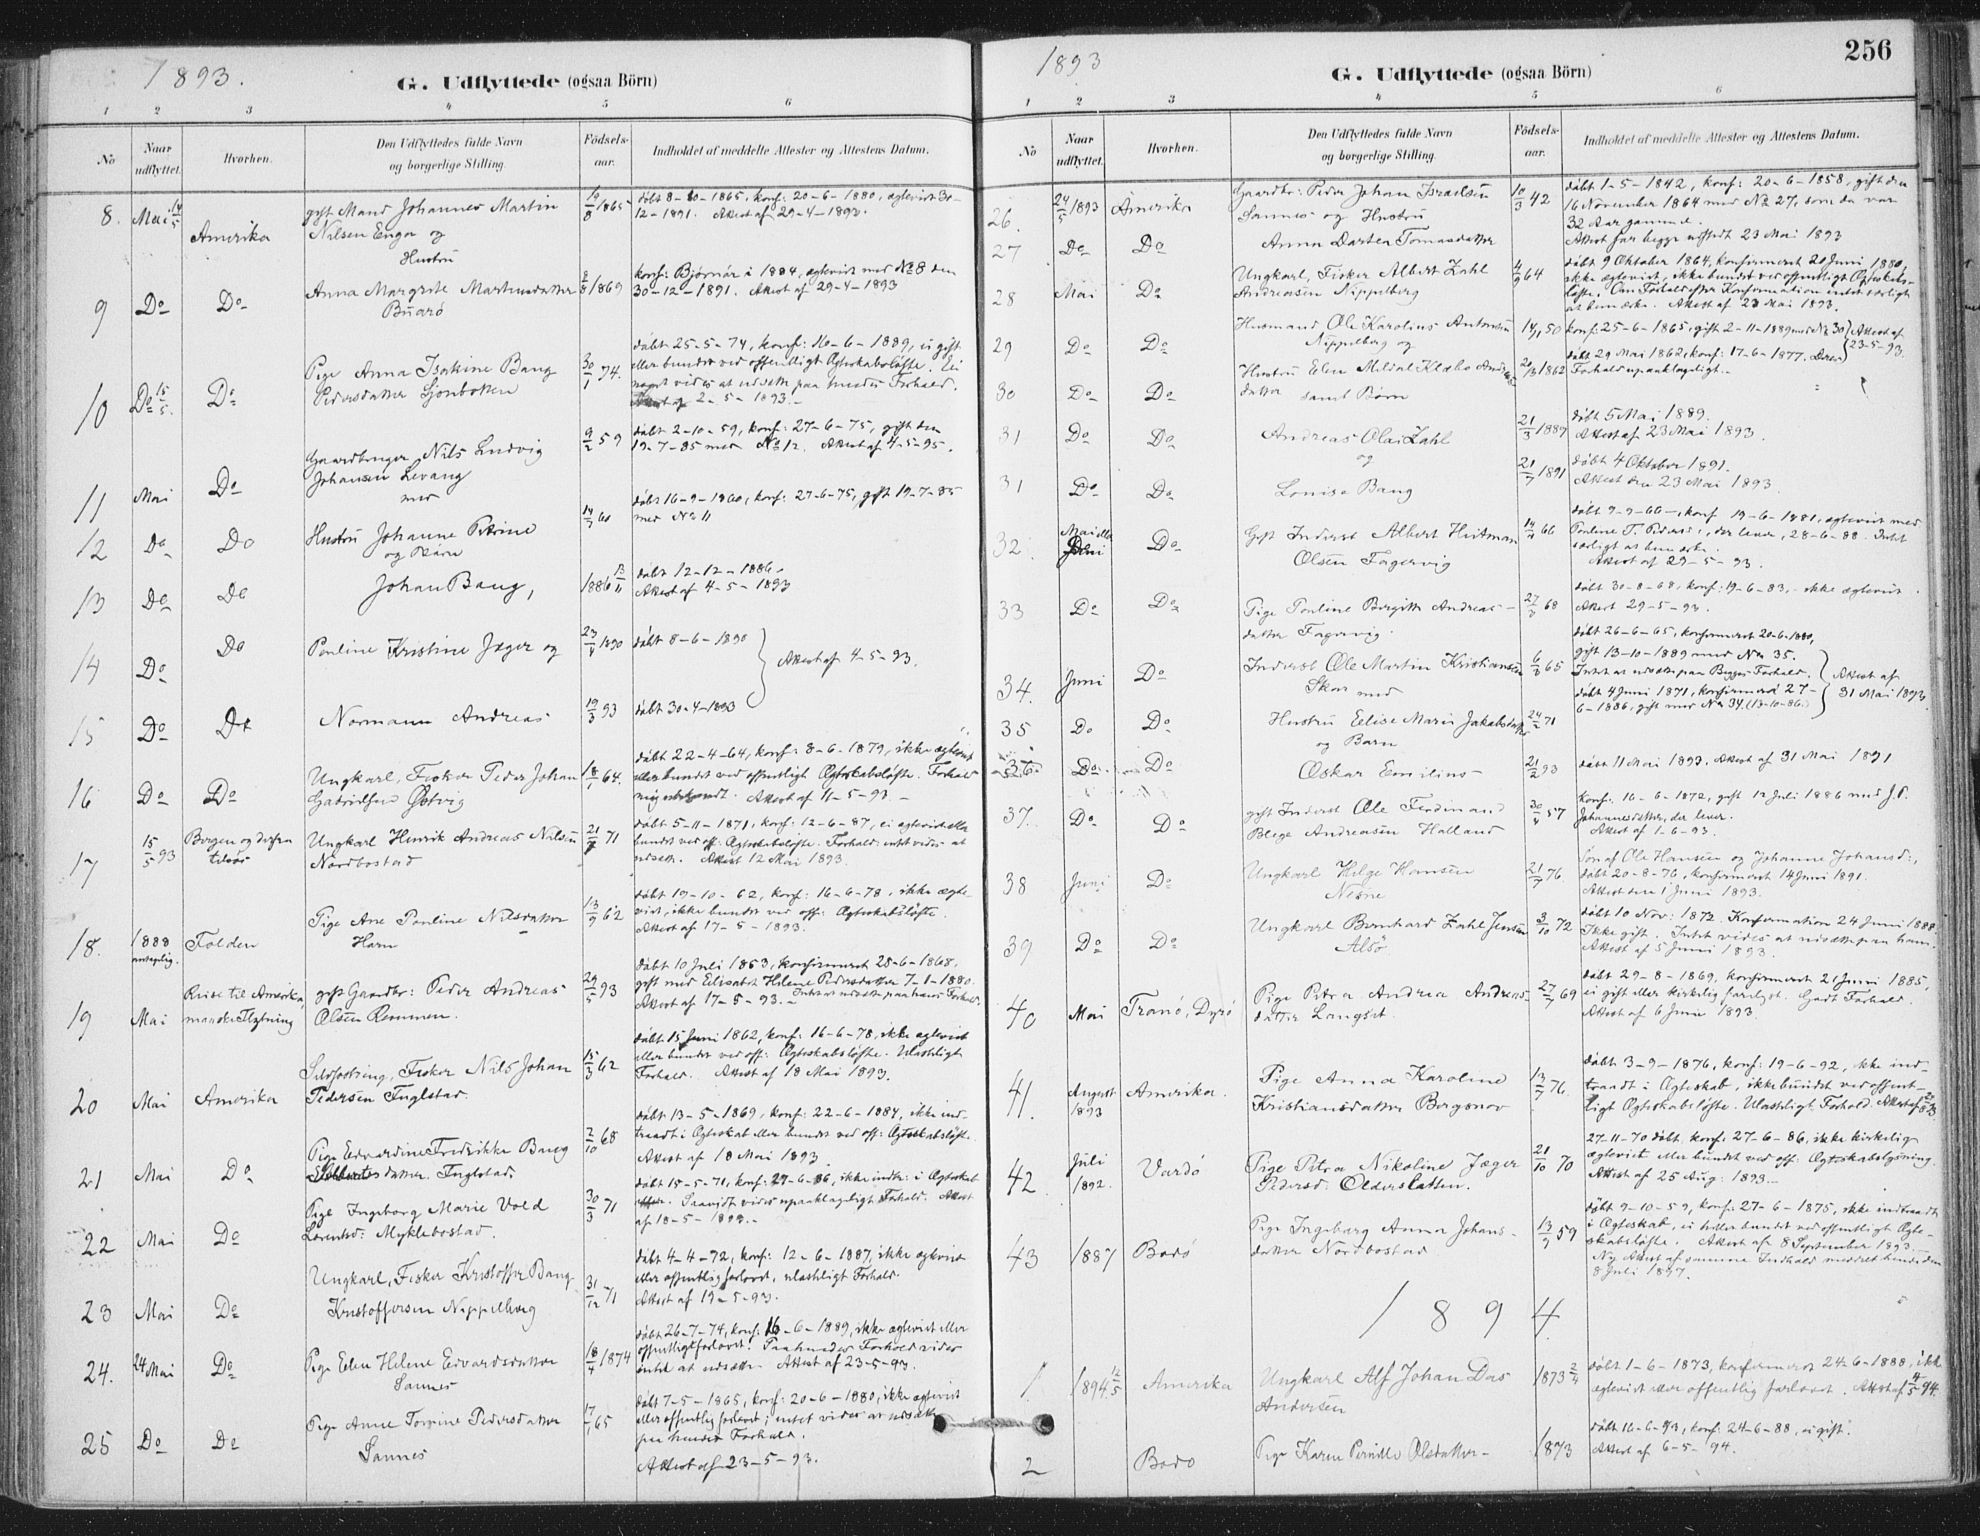 1893.
G. Udflyttede (ogsaa Börn)
1 2 3 4 5 6
No
Naar udflyttet.
Hvorhen.
Den Udflyttedes fulde Navn
og borgerlige Stilling.
Födsels-
aar.
Indholdet af meddelte Attester og Attestens Datum.
8. Mai 14/5 Amerika
gift Mand Johannes Martin
Nilsen Enga og
Hustru
1865
døbt 8-10-1865, konf: 20-6-1880, ægteviet 30-
12-1891. Attest af 29-4-1893.
9 Do Do
Anna Margrite Martinsdatter
Buarø
1869
konf: Bjørnør i 1884, ægteviet med No 8 den
30-12-1891. Attest af 29-4-1893
10 Do 15/5. Do
Pige Anna Isakine Bang
Pedersdatter Sjonbotten
30/1 74.
døbt 25-5-74, konf: 16-6-1889, ei gift
eller bundet ved offentligt Ægteskabsløfte. Ei
noget vides at udsætte paa hendes Forhold.
Attest af 2-5-1893.
11 Mai Do
Gaardbruger Nils Ludvig
Johansen Levang
med
9/2 59
døbt 2-10-59, konf: 27-6-75, gift den
19-7-85 med No 12. Attest af 4-5-95.
12 Do Do
Hustru Johanne Petrine
og Børn
14/7 60
døbt 16-9-1860, konf: 27-6-75, gift 19-7-85
med No 11
13 Do Do
Johan Bang,
1886 13/11
døbt 12-12-1886.
Attest af 4-5-1893
14 Do Do
Pauline Kristine Jæger og
23/4 1890
døbt 8-6-1890
Attest af 4-5-93.
15 Do Do
Normann Andreas
19/3 93
døbt 30-4-1893
16 Do Do
Ungkarl, Fisker Peder Johan
Gabrielsen Østvig
64.
døbt 22-4-64, konf: 8-6-1879, ikke ægteviet
eller bundet ved offentligt Ægteskabsløfte. Forhold
mig ubekjendt. Attest af 11-5-93.
17 15/5 93 Bergen og derfra
tilsøs
Ungkarl Henrik Andreas Nilsen
Nordbostad
21/7 71
døbt 5-11-1871, konf: 12-6-87, ei ægteviet eller
bundet ved off: Ægteskabsløfte. Forhold: intet vides at
udsætte. Attest 12 Mai 1893.
18. 1888
antagelig.
Folden
Pige Ane Pauline Nilsdatter
Havn
13/9 62
døbt 19-10-62, konf: 16-6-78, ikke ægte-
viet, ikke bundet ved off: Ægteskabsløfte.
Attest af 17-5-1893.
19 Mai
Reise til Amerika,
maaske Flytning
gift Gaardbr: Peder Andreas
Olsen Remmen.
29/5 93
døbt 10 Juli 1853, konfirmeret 28-6-1868,
gift med Elisabet Helene Pedersdatter 7-1-1880.
Attest af 17-5-93. Intet at udsætte paa hans Forhold.
20 Mai Amerika
Selvfostring, Fisker Nils Johan
Pedersen Inglstad.
15/3 62
døbt 15 Juni 1862, konf: 16-6-78, ikke ægteviet
eller bundet ved off: Ægteskabsløfte. Ulastligt
Forhold. Attest af 18 Mai 1893.
21 Mai Do
Pige Edvardine Fredrikke Bang
datter Inglstad.
2/10 68
døbt 13-5-1869, konf: 22-6-1884, ikke ind-
traadt i Ægteskab eller bundet ved off: Ægteskabsløfte.
Attest af 18 Mai 1893
22 Mai Do
Pige Ingeborg Marie Vold
Lorentsd: Myklebostad.
30/3 71
døbt 15-5-71, konf: 27-6-86, ikke indtr: i Ægteskab
Saavidt vides upaaklageligt Forhold. Attest
af 18-5-1893.
23 Mai Do
Ungkarl, Fisker Kristoffer Bang
Kristoffersen Nippelberg
31/12 71
døbt 4-4-72, konf: 12-6-1887, ikke ægteviet
eller offentlig forlovet, ulastligt Forhold.
Attest af 19-5-93.
24. 24 Mai Do
Pige Ellen Helene Edvardsdatter
Sannes
18/4 1874
døbt 26-7-74, konf: 16-6-1889, ikke ægteviet eller
offentligt forlovet. Paa hendes Forhold vides
intet at udsætte. Attest af 23-5-93.
25 Do Do
Pige Anne Tomine Pedersdatter
Sannes
65
døbt 7-5-1865, konf: 20-6-1880, ikke ægteviet
eller offentlig forlovet; intet vides at udsætte
paa hendes Forhold.
Attest af 23-5-93.
1893
G. Udflyttede (ogsaa Börn)
256
1 2 3 4 5 6
No
Naar udflyttet.
Hvorhen.
Den Udflyttedes fulde Navn
og borgerlige Stilling.
Födsels-
aar.
Indholdet af meddelte Attester og Attestens Datum.
26. 24/5 1893 Amerika
Gaardbr: Peder Johan Israelsen
Sannes og Hustru
10/3 42
døbt 1-5-1842, konf: 20-6-1858, gift den
16 November 1864 med No 27, som da var
32 Aar gammel.
Attest for begge udstedt 23 Mai 1893
27 Do Do
Anna Dortea Tomasdatter
28 Mai Do
Ungkarl, Fisker Albert Zahl
Andreasen Nippelberg
4/9 64
døbt 9 Oktober 1864, konfirmeret 20 Juni 1880,
ikke ægteviet, ikke bundet ved offentligt Ægteskabs-
løfte. Om Forhold efter Konfirmation intet særligt
at bemærke. Attest af 23 Mai 1893.
29 Do Do
Husmand Ole Karolius Antonsen
Nippelberg og
14/1 50
konf: 25-6-1865, gift 2-11-1889 med No 30
Attest af
23-5-93.
30 Do Do
Hustru Elen Mildal Klæbo Andreas-
datter samt Børn
1862
døbt 29 Mai 1862, konf: 17-6-1877. Deres
Forhold upaaklageligt.
31 Do Do
Andreas Olai Zahl
og
21/3 1889
døbt 5 Mai 1889.
Attest af 23 Mai 1893.
31 Do Do
Lovise Bang
21/7 1891
døbt 4 Oktober 1891.
Attest den 23 Mai 1893.
32. Mai eller
Juni Do
Gift Inderst Albert Hartman
Olsen Fagervig
66
døbt 9-9-66, konf 19-6-1881, ægteviet med
Pauline T. Pedersd:, der lever, 28-6-88. Intet
særligt at bemærke.
Attest af 29-5-93.
33 Do Do
Pige Pauline Birgitte Andreas-
datter Fagervig.
27/3 68
døbt 30-8-68, konf: 19-6-83, ikke ægteviet.
Attest 29-5-93.
34. Juni Do
Inderst Ole Martin Kristiansen
Skar med
65
døbt 26-6-65, konfirmeret 20-6-1880,
gift 13-10-1889 med No 35.
Intet at udsætte paa Begges Forhold.
Attest af
31 Mai 1893.
35 Do Do
Hustru Elise Marie Jakobsdatter
og Barn
24/2 71
døbt 4 Juni 1871, konfirmeret 27-
6-1886, gift med No 34 (13-10-86.)
36. Do Do
Oskar Emilius
21/2 93
døbt 11 Mai 1893. Attest af 31 Mai 1891
37. Do Do
gift Inderst Ole Ferdinand
Blege Andreasen Halland
30/4 57
Konf: 16-6-1872, gift 12 Juli 1886 med J. P.
Johannesdatter, der lever.
Attest af 1-6-93.
38 Juni Do
Ungkarl Helge Hansen
Nesne
21/7 76.
Søn af Ole Hansen og Johanne Johansd:,
døbt 20-8-76, konfirmeret 14 Juni 1891.
Attest den 1 Juni 1893.
39 Do Do
Ungkarl Bernhard Zahl Jensen
Alsø
3/10 72
døbt 10 Nov: 1872. Konfirmation 24 Juni 1888
Ikke gift. Intet vides at udsætte paa ham.
Attest af 5 Juni 1893.
40 Mai Tranø, Dyrø
Pige Petra Andrea Andreas-
datter Langset.
27/7 69
døbt 29-8-1869, konfirmeret 21 Juni 1885,
ei gift eller kirkelig forlovet. Godt Forhold.
Attest af 6 Juni 1893.
41. August
1893 Amerika.
Pige Anna Karoline
Kristiansdatter Bergsnov
13/7 76.
døbt 3-9-1876, konf: 19-6-92, ikke ind-
traadt i Ægteskab, ikke bundet ved offent-
ligt Ægteskabsløfte. Ulastligt Forhold. Attest af
42 Juli
1892. Vardø
Pige Petra Nikoline Jæger
Pedersd: Olderslatten.
21/10 70
27-11-70 døbt, konf: 27-6-86, ikke kirkelig
ægteviet eller bundet ved off: Ægteskabslysning.
Attest af 25 Aug: 1893.
43 1887 Bodø
Pige Ingeborg Anna Johans-
datter Nordbostad
13/9 59
døbt 9-10-59, konf: 27-6-1875, ikke indtraadt
i Ægteskab, ei heller bundet ved offentligt Ægte-
skabsløfte. Attest af 8 September 1893.
Ny Attest af samme Indhold meddelt hende den
8 Juli 1897.
1894.
1 1894 Amerika
Ungkarl Alf Johan Das
Andersen
1873 2/4
døbt 1-6-1873, konfirmeret 24-6-1888, ikke
ægteviet eller offentlig forlovet. Attest af 4/5 94.
2 Bodø
Pige Karen Pernille Olsdatter
1873
døbt 16-6-93, konf: 24-6-88, ei gift.
Attest af 6-5-94.